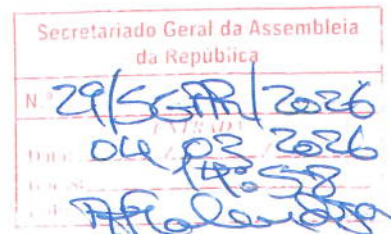 Secretariado Geral da Assembleia
da República
N.º 29/SGAR/2026
ENTRADA
Data: 04/03/2026
14:58